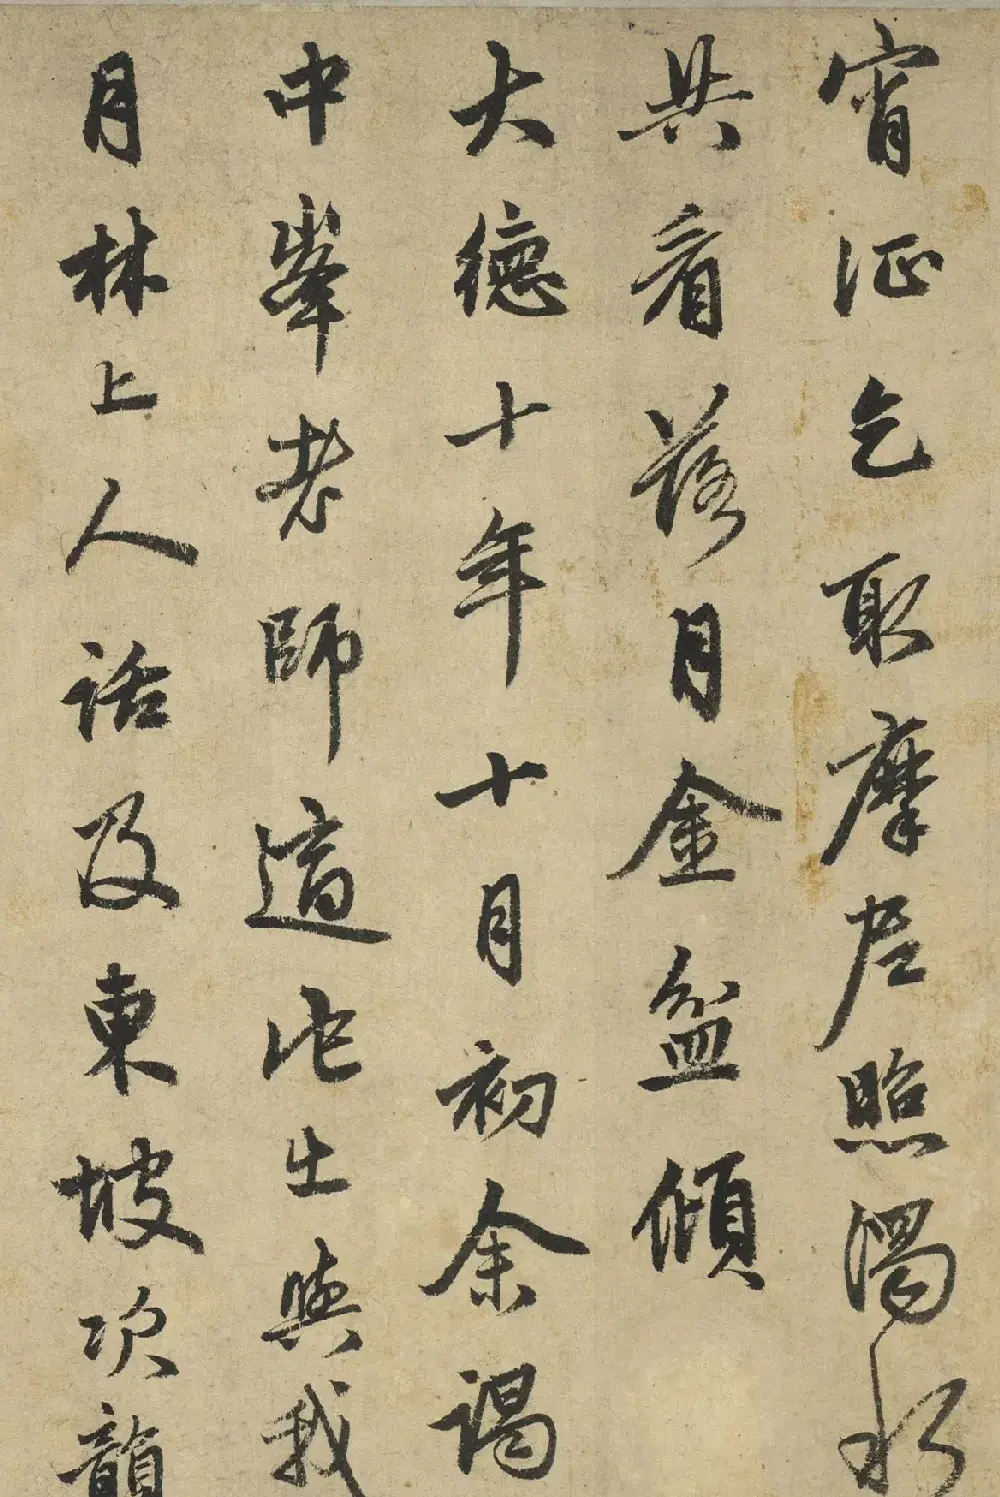 宵征乞取摩尼照濁水
共看落月金盆傾
大德十年十月初余謁
中峯老師適他出與我
月林上人話及東坡次韻